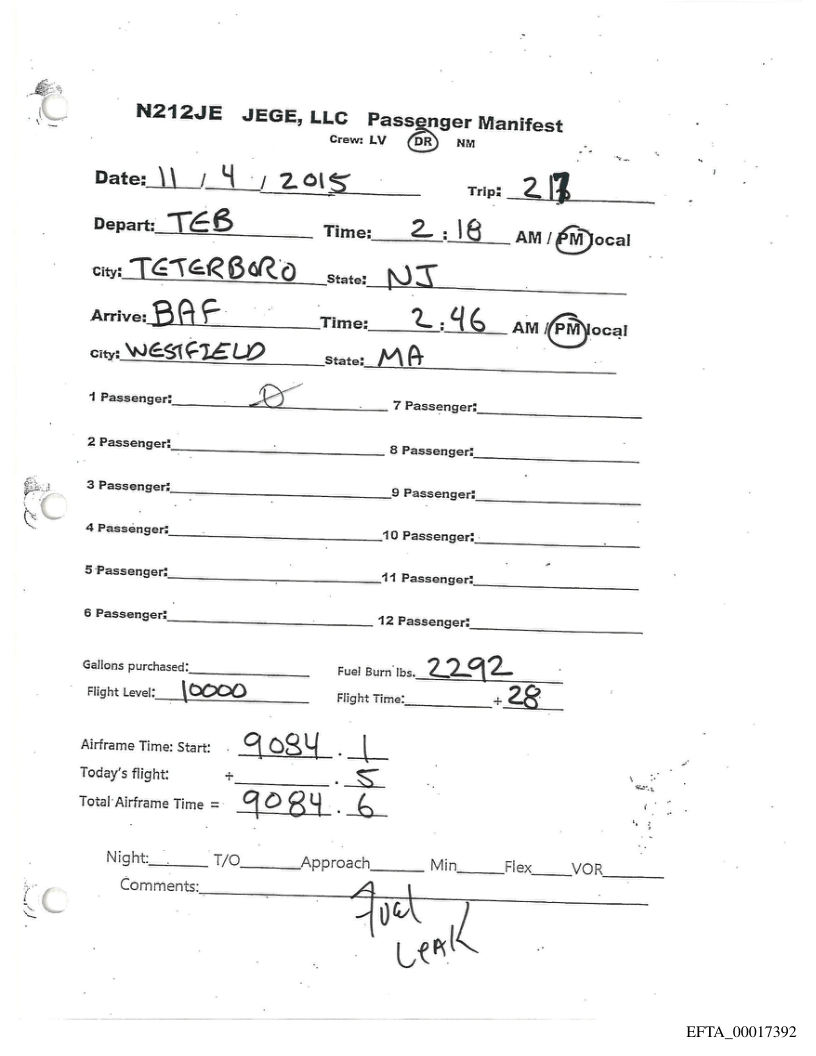 N212JE JEGE, LLC Passenger Manifest
Crew: LV DR NM
Date: 11 / 4 / 2015 Trip:
Depart: TEB Time: 2 : 18 AM / PM local
City: TETERBORO State: NJ
Arrive: BAF Time: 2 : 46 AM / PM local
City: WESTFIELD State: MA
1 Passenger: 0 7 Passenger:
2 Passenger: 8 Passenger:
3 Passenger: 9 Passenger:
4 Passenger: 10 Passenger:
5 Passenger: 11 Passenger:
6 Passenger: 12 Passenger:
Gallons purchased: Fuel Burn lbs. 2292
Flight Level: 10000 Flight Time: + 28
Airframe Time: Start: 9084 . 1
Today's flight: + . 5
Total Airframe Time = 9084 . 6
Night: T/O Approach Min Flex VOR
Comments:
Fuel
Leak
EFTA_00017392